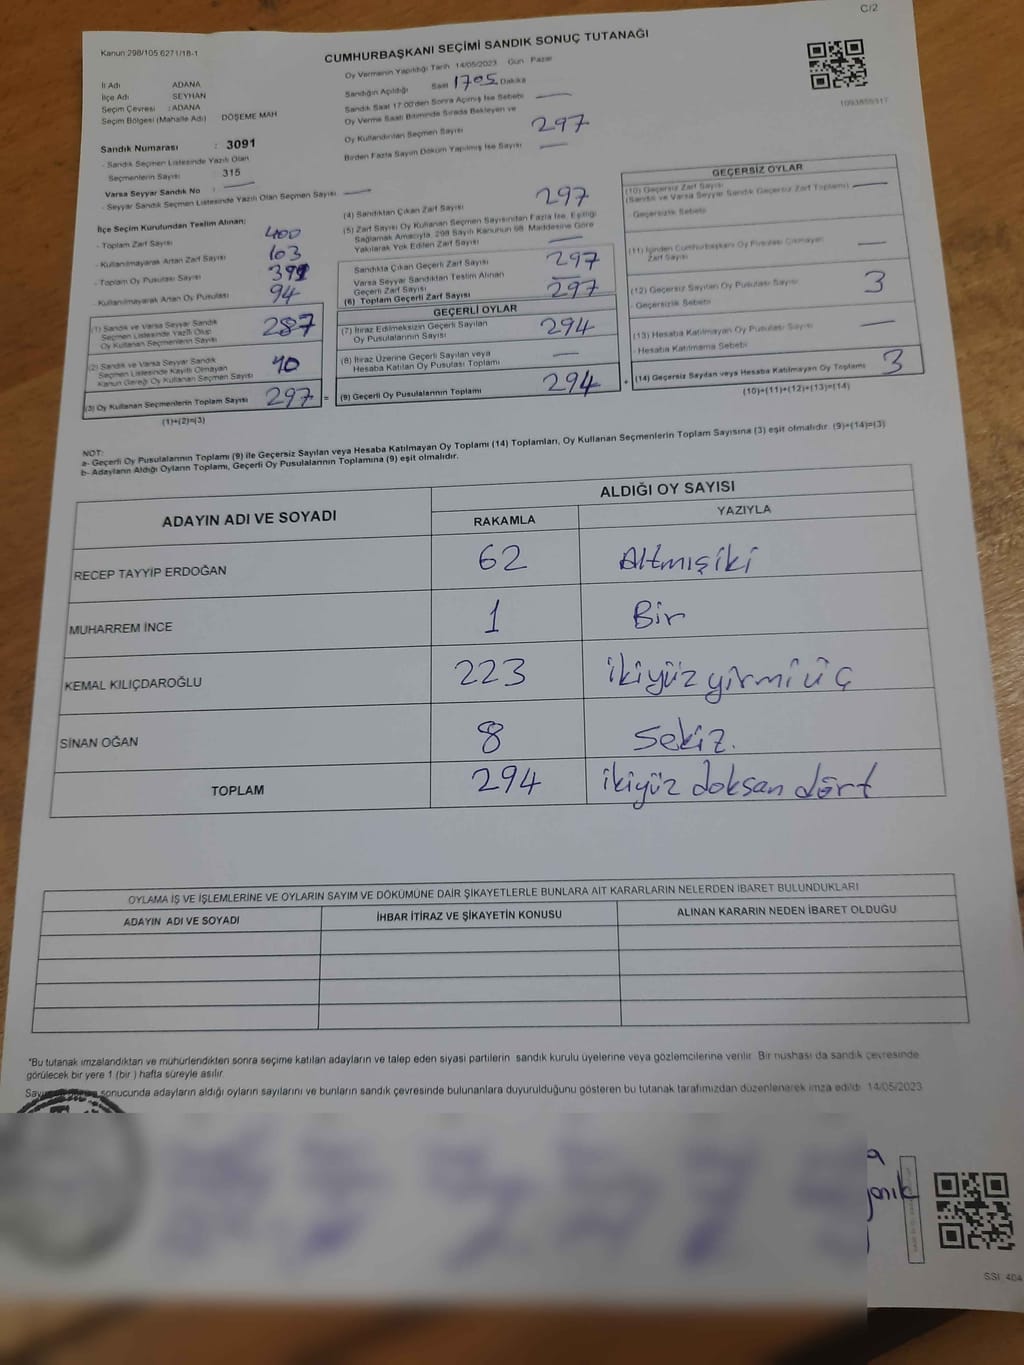 C/2
Kanun 298/105 6271/18-1
CUMHURBAŞKANI SEÇİMİ SANDIK SONUÇ TUTANAĞI
Oy Vermenin Yapıldığı Tarih 14/05/2023 Gün Pazar
Sandığın Açıldığı Saat 1705 Dakika
Sandık Saat 17:00'den Sonra Açılmış İse Sebebi
Oy Verme Saati Bitiminde Sırada Bekleyen ve
Oy Kullandırılan Seçmen Sayısı 297
Birden Fazla Sayım Döküm Yapılmış İse Sayısı
1093855317
İl Adı ADANA
İlçe Adı SEYHAN
Seçim Çevresi : ADANA
Seçim Bölgesi (Mahalle Adı) DÖŞEME MAH
Sandık Numarası : 3091
- Sandık Seçmen Listesinde Yazılı Olan
Seçmenlerin Sayısı : 315
Varsa Seyyar Sandık No :
- Seyyar Sandık Seçmen Listesinde Yazılı Olan Seçmen Sayısı
İlçe Seçim Kurulundan Teslim Alınan:
- Toplam Zarf Sayısı 400
- Kullanılmayarak Artan Zarf Sayısı 103
- Toplam Oy Pusulası Sayısı
- Kullanılmayarak Artan Oy Pusulası 94
(1) Sandık ve Varsa Seyyar Sandık
Seçmen Listesinde Yazılı Olup
Oy Kullanan Seçmenlerin Sayısı 287
(2) Sandık ve Varsa Seyyar Sandık
Seçmen Listesinde Kayıtlı Olmayan
Kanun Gereği Oy Kullanan Seçmen Sayısı 10
(3) Oy Kullanan Seçmenlerin Toplam Sayısı 297 =
(1)+(2)=(3)
(4) Sandıktan Çıkan Zarf Sayısı 297
(5) Zarf Sayısı Oy Kullanan Seçmen Sayısından Fazla İse, Eşitliği
Sağlamak Amacıyla, 298 Sayılı Kanunun 98. Maddesine Göre
Yakılarak Yok Edilen Zarf Sayısı
Sandıkta Çıkan Geçerli Zarf Sayısı 297
Varsa Seyyar Sandıktan Teslim Alınan
Geçerli Zarf Sayısı
(6) Toplam Geçerli Zarf Sayısı 297
GEÇERLİ OYLAR
(7) İtiraz Edilmeksizin Geçerli Sayılan
Oy Pusulalarının Sayısı 294
(8) İtiraz Üzerine Geçerli Sayılan veya
Hesaba Katılan Oy Pusulası Toplamı
(9) Geçerli Oy Pusulalarının Toplamı 294 +
GEÇERSİZ OYLAR
(10) Geçersiz Zarf Sayısı
(Sandık ve Varsa Seyyar Sandık Geçersiz Zarf Toplamı)
- Geçersizlik Sebebi
(11) İçinden Cumhurbaşkanı Oy Pusulası Çıkmayan
Zarf Sayısı
(12) Geçersiz Sayılan Oy Pusulası Sayısı 3
- Geçersizlik Sebebi
(13) Hesaba Katılmayan Oy Pusulası Sayısı
- Hesaba Katılmama Sebebi
(14) Geçersiz Sayılan veya Hesaba Katılmayan Oy Toplamı 3
(10)+(11)+(12)+(13)=(14)
NOT:
a- Geçerli Oy Pusulalarının Toplamı (9) ile Geçersiz Sayılan veya Hesaba Katılmayan Oy Toplamı (14) Toplamları, Oy Kullanan Seçmenlerin Toplam Sayısına (3) eşit olmalıdır. (9)+(14)=(3)
b- Adayların Aldığı Oyların Toplamı, Geçerli Oy Pusulalarının Toplamına (9) eşit olmalıdır.
ADAYIN ADI VE SOYADI
ALDIĞI OY SAYISI
RAKAMLA YAZIYLA
RECEP TAYYİP ERDOĞAN 62 Altmışiki
MUHARREM İNCE 1 Bir
KEMAL KILIÇDAROĞLU 223 ikiyüz yirmi üç
SİNAN OĞAN 8 Sekiz.
TOPLAM 294 ikiyüz doksan dört
OYLAMA İŞ VE İŞLEMLERİNE VE OYLARIN SAYIM VE DÖKÜMÜNE DAİR ŞİKAYETLERLE BUNLARA AİT KARARLARIN NELERDEN İBARET BULUNDUKLARI
ADAYIN ADI VE SOYADI İHBAR İTİRAZ VE ŞİKAYETİN KONUSU ALINAN KARARIN NEDEN İBARET OLDUĞU
*Bu tutanak imzalandıktan ve mühürlendikten sonra seçime katılan adayların ve talep eden siyasi partilerin sandık kurulu üyelerine veya gözlemcilerine verilir. Bir nüshası da sandık çevresinde
görülecek bir yere 1 (bir ) hafta süreyle asılır.
sonucunda adayların aldığı oyların sayılarını ve bunların sandık çevresinde bulunanlara duyurulduğunu gösteren bu tutanak tarafımızdan düzenlenerek imza edildi. 14/05/2023
SSI 404